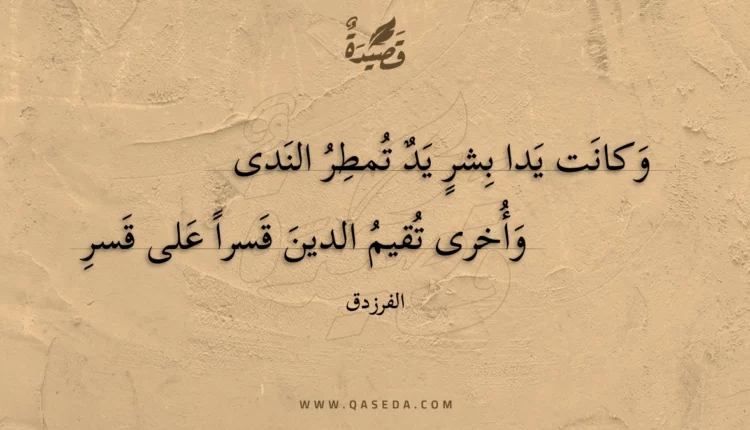 قَصِيدَةٌ
وَكانَت يَدا بِشرٍ يَدٌ تُمطِرُ النَدى
وَأُخرى تُقيمُ الدينَ قَسراً عَلى قَسرِ
الفرزدق
WWW.QASEDA.COM